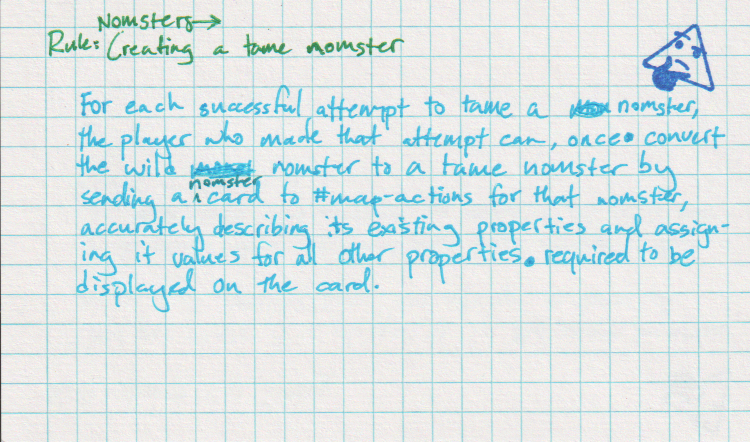 Nomsters →
Rule: Creating a tame nomster
For each successful attempt to tame a nomster,
the player who made that attempt can, once convert
the wild nomster to a tame nomster by
nomster
sending a ^ card to #map-actions for that nomster,
accurately describing its existing properties and assign-
ing it values for all other properties required to be
displayed on the card.